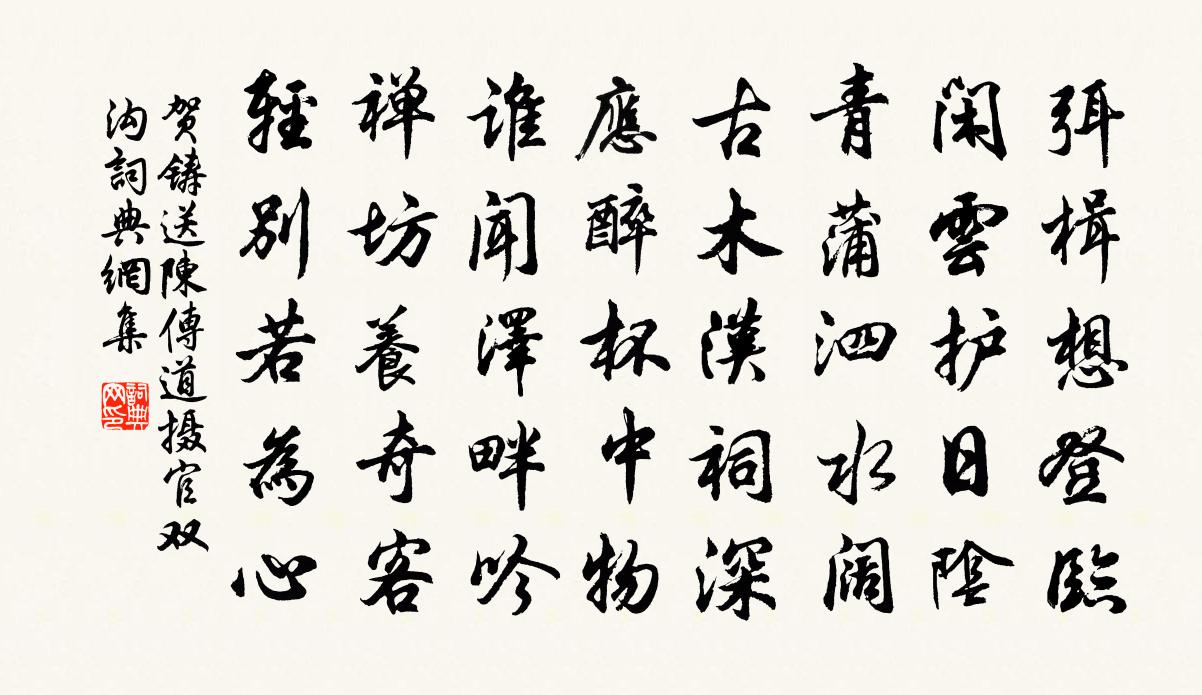 弭楫想登臨
閑雲护日陰
青蒲泗水阔
古木漢祠深
應醉杯中物
誰闻澤畔吟
禅坊養奇客
輕别若為心
贺鑄送陳傅道摄官双
沟詞典網集
詞典网印